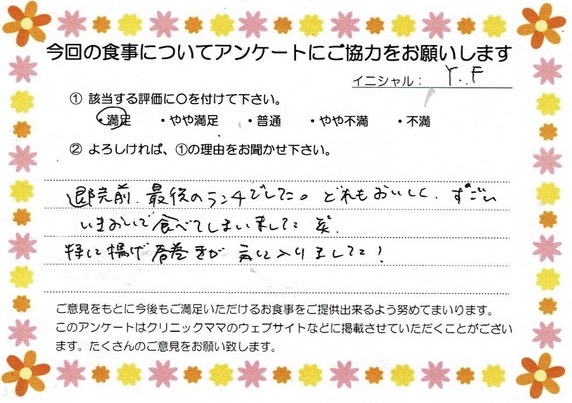 今回の食事についてアンケートにご協力をお願いします
イニシャル： Y.F
① 該当する評価に○を付けて下さい。
・満足 ・やや満足 ・普通 ・やや不満 ・不満
② よろしければ、①の理由をお聞かせ下さい。
退院前、最後のランチでした。どれもおいしく、すごい
いきおいで食べてしまいました 笑
特に揚げ春巻きが気に入りました！
ご意見をもとに今後もご満足いただけるお食事をご提供出来るよう努めてまいります。
このアンケートはクリニックママのウェブサイトなどに掲載させていただくことがござい
ます。たくさんのご意見をお願い致します。